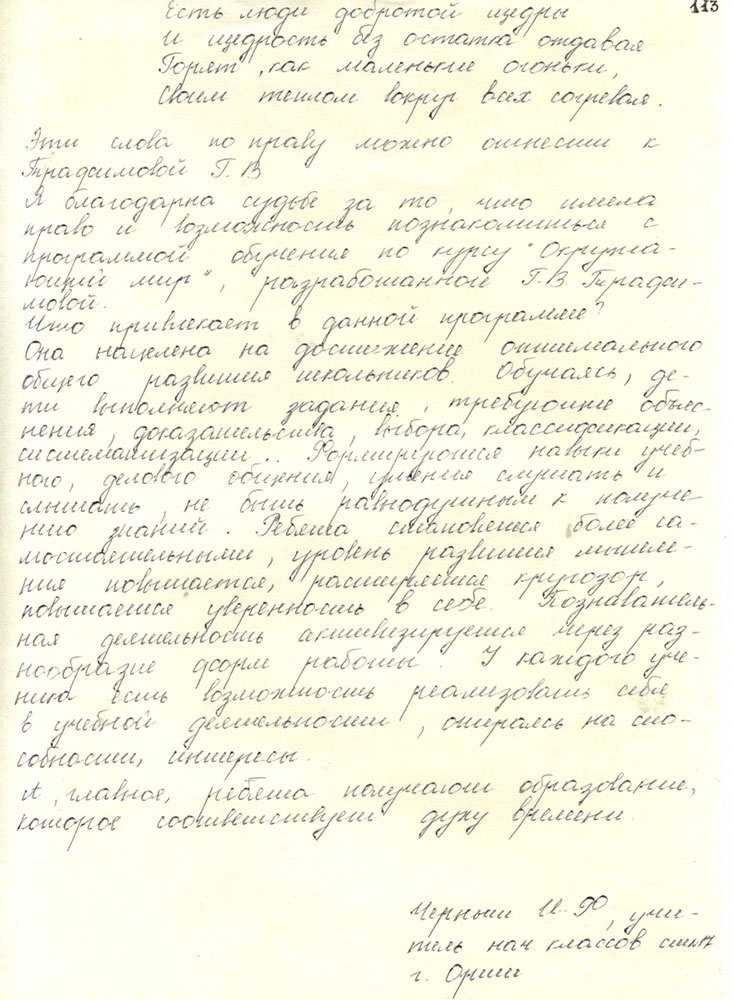 113
Есть люди добротой щедры
И щедрость без остатка отдавая
Горят, как маленькие огоньки,
Своим теплом вокруг всех согревая.
Эти слова по праву можно отнести к
Трафимовой Г.В
Я благодарна судьбе за то, что имела
право и возможность познакомиться с
программой обучения по курсу "Окружа-
ющий мир", разработанной Г.В Трафи-
мовой.
Что привлекает в данной программе?
Она нацелена на достижение оптимального
общего развития школьников. Обучаясь, де-
ти выполняют задания, требующие объяс-
нения, доказательства, выбора, классификации,
систематизации.. Формируются навыки учеб-
ного, делового общения, умения слушать и
слышать, не быть равнодушным к получе-
нию знаний. Ребята становятся более са-
мостоятельными, уровень развития мышле-
ния повышается, расширяется кругозор,
повышается уверенность в себе. Познаватель-
ная деятельность активизируется через раз-
нообразие форм работы. У каждого уче-
ника есть возможность реализовать себя
в учебной деятельности, опираясь на спо-
собности, интересы.
А, главное, ребята получают образование,
которое соответствует духу времени.
И.Ю, учи-
тель нач. классов
г. Орши